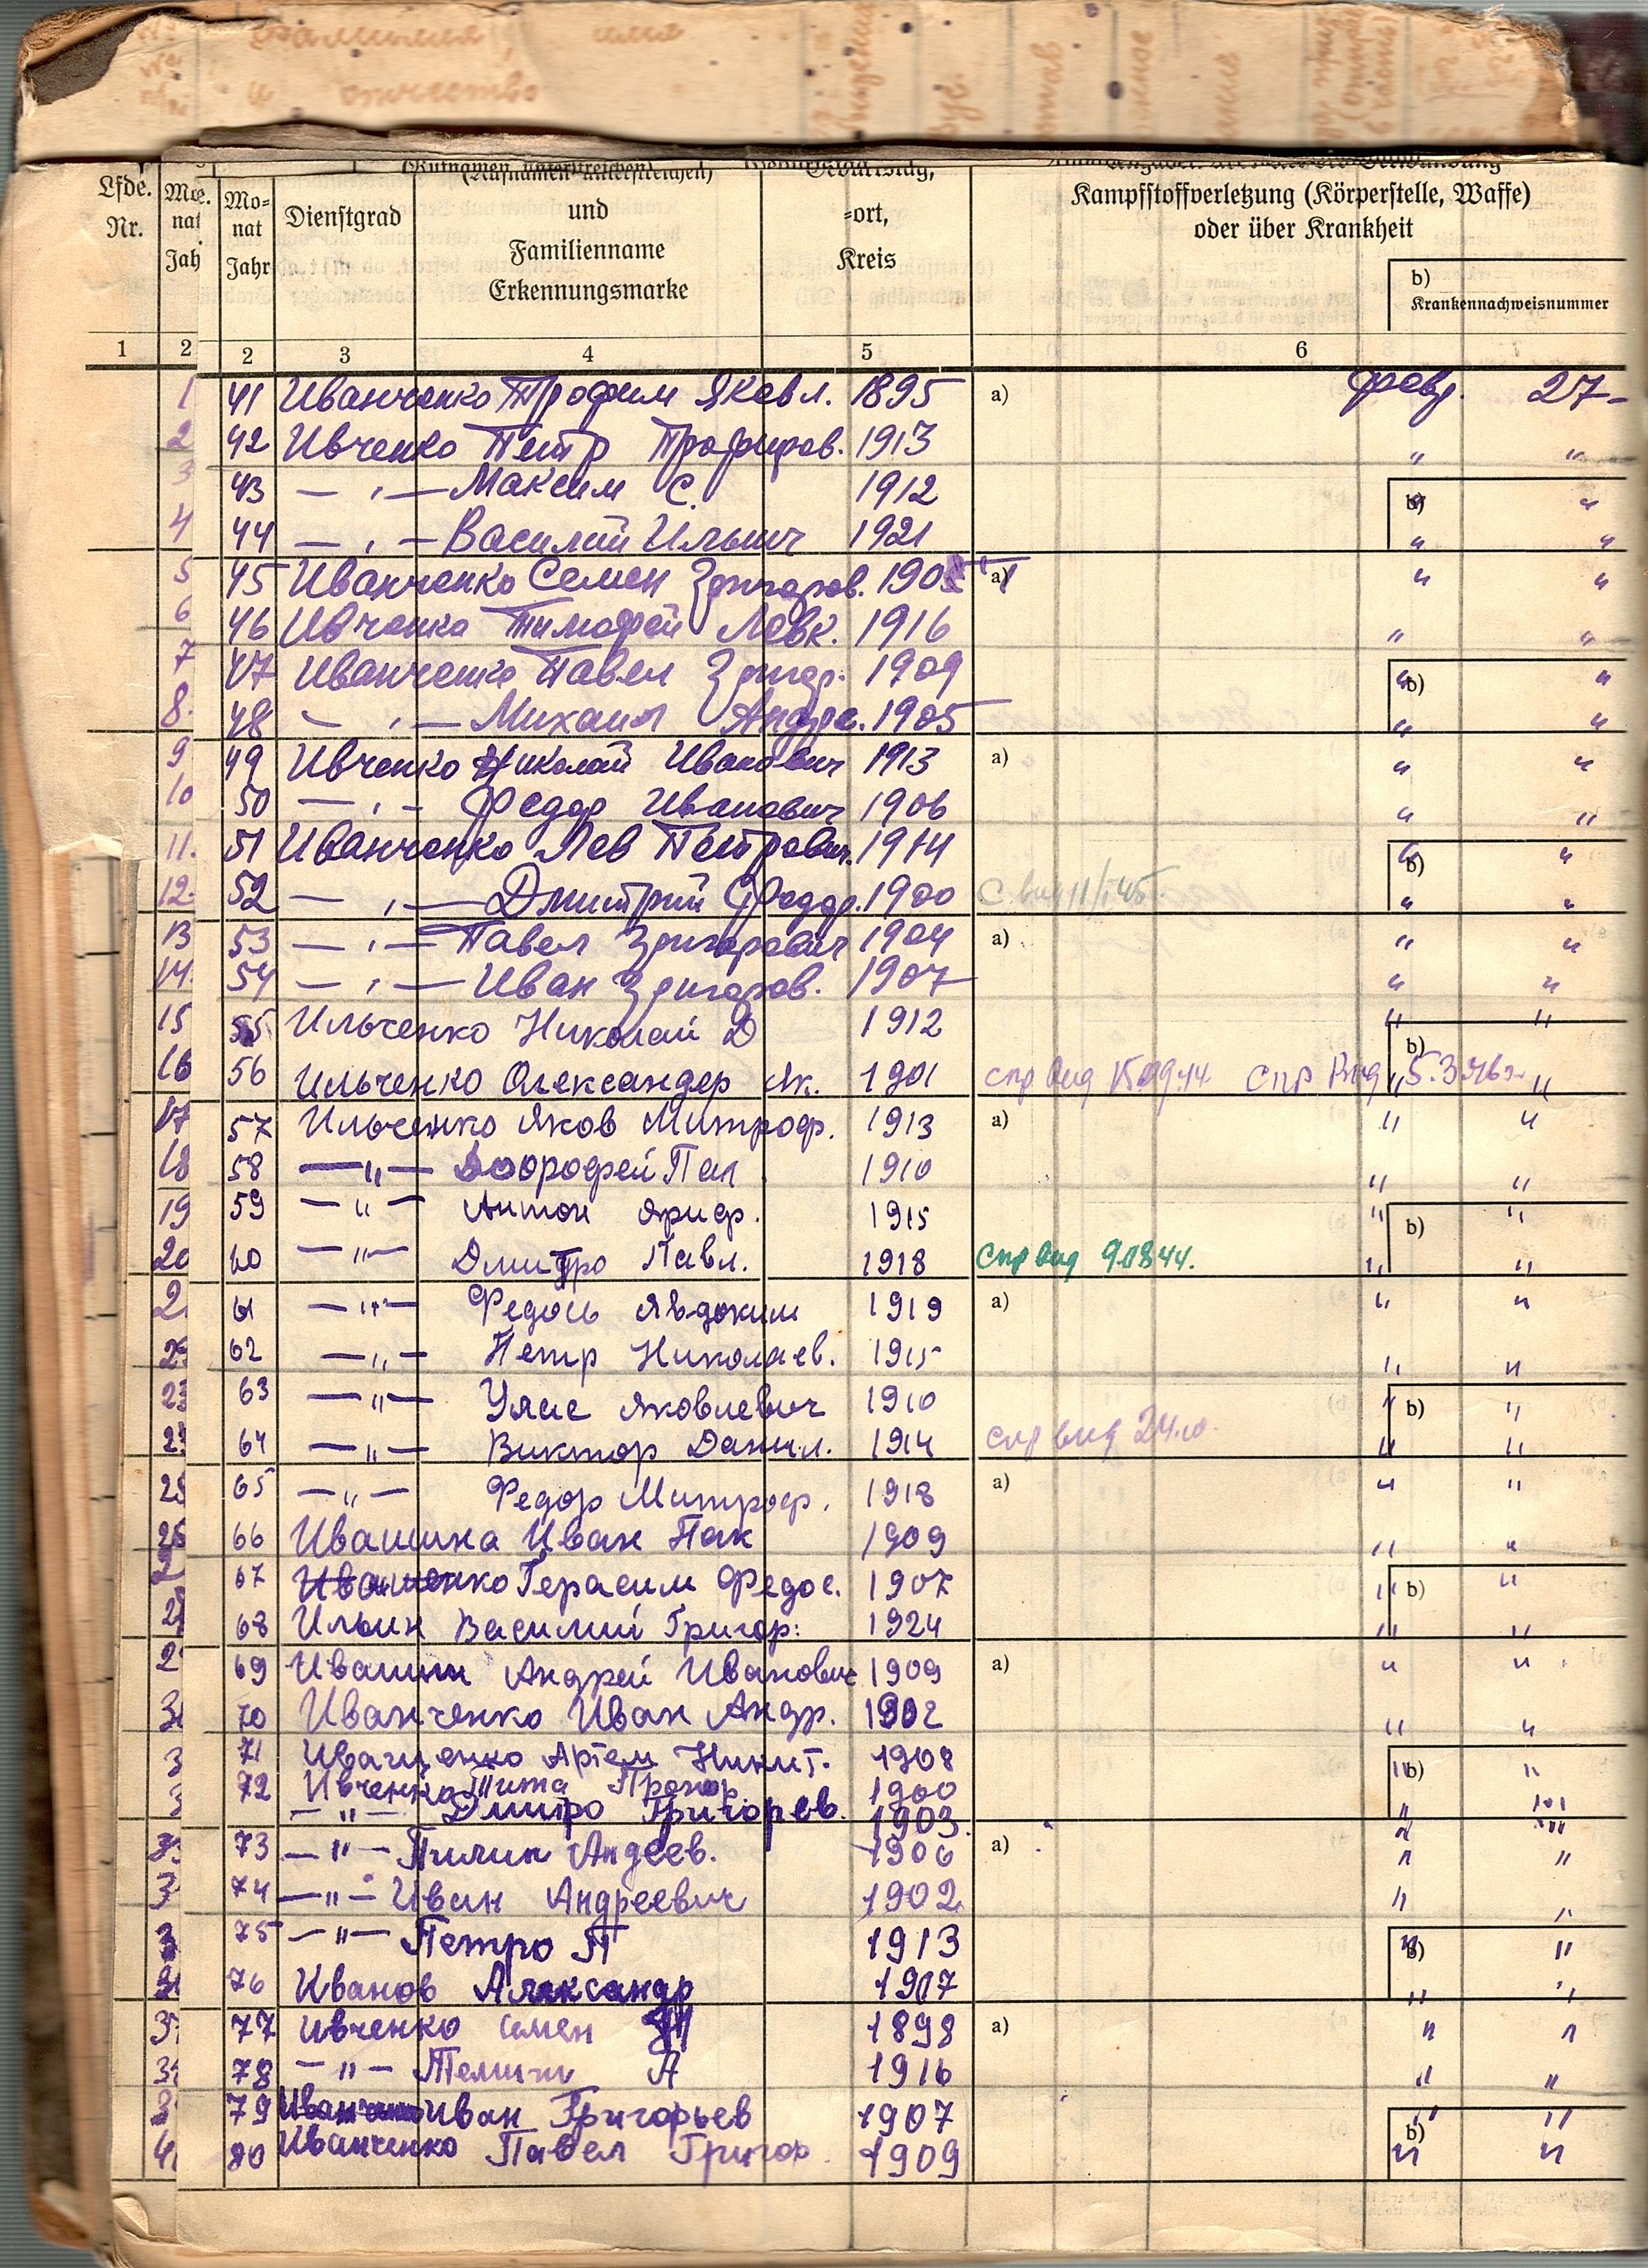 фамилия, имя
и отчество
(Rufnamen unterstreichen)
Lfde. Nr.
Mo= nat Jahr
Dienstgrad
und Familienname Erkennungsmarke
Geburtstag, =ort, Kreis
Kampfstoffverletzung (Körperstelle, Waffe)
oder über Krankheit
b) Krankennachweisnummer
1 2 2 3 4 5 6
1 41 Иванченко Трофим Яковл. 1895 a) февр. 27-
2 42 Ивченко Петр Трофимов. 1913 " "
3 43 — " — Максим С. 1912 b) " "
4 44 — " — Василий Ильич 1921 " "
5 45 Иванченко Семен Григоров. 190 a) " "
6 46 Ивченко Тимофей Левк. 1916 " "
7 47 Иванченко Павел Григор. 1909 b) " "
8. 48 — " — Михаил Андре. 1905 " "
9 49 Ивченко Николай Иванович 1913 a) " "
10 50 — " — Федор Иванович 1906 " "
11. 51 Иванченко Лев Петрович. 1914 b) " "
12. 52 — " — Дмитрий Федор. 1900 " "
13 53 — " — Павел Григорович 1904 a) " "
14. 54 — " — Иван Григоров. 1907 " "
15 55 Ильченко Николай Д 1912 " "
16 56 Ильченко Олександер Як. 1901 спр вид 15.09.44 спр вид 5.3.46г. b) " "
17 57 Ильченко Яков Митроф. 1913 a) " "
18 58 — " — Дорофей Пал 1910 " "
19 59 — " — Антон 1915 b) " "
20 60 — " — Дмитро Павл. 1918 спр вид 9.08.44. " "
2 61 — " — Федось Явдоким 1919 a) " "
2 62 — " — Петр Николаев. 1915 " "
23 63 — " — Улас Яковлевич 1910 b) " "
2 64 — " — Виктор Данил. 1914 спр вид 24.10. " "
25 65 — " — Федор Митроф. 1918 a) " "
26 66 Ивашина Иван Пак 1909 " "
2 67 Иваненко Герасим Федос. 1907 b) " "
2 68 Ильин Василий Григор: 1924 " "
2 69 Ивашин Андрей Иванович 1909 a) " "
3 70 Иванченко Иван Андр. 1902 " "
3 71 Иващенко Артем Никит. 1908 b) " "
3 72 Ивченко Тита Прокор. 1900 " "
— " — Дмитро Григорьев. 1903 " "
3 73 — " — Пилип Андеев. 1906 a) " "
3 74 — " — Иван Андреевич 1902 " "
3 75 — " — Петро П 1913 b) " "
3 76 Иванов Александр 1907 " "
3 77 Ивченко Семен 1898 a) " "
3 78 — " — А 1916 " "
3 79 Иван Григорьев 1907 b) " "
4 80 Иванченко Павел Григор. 1909 " "